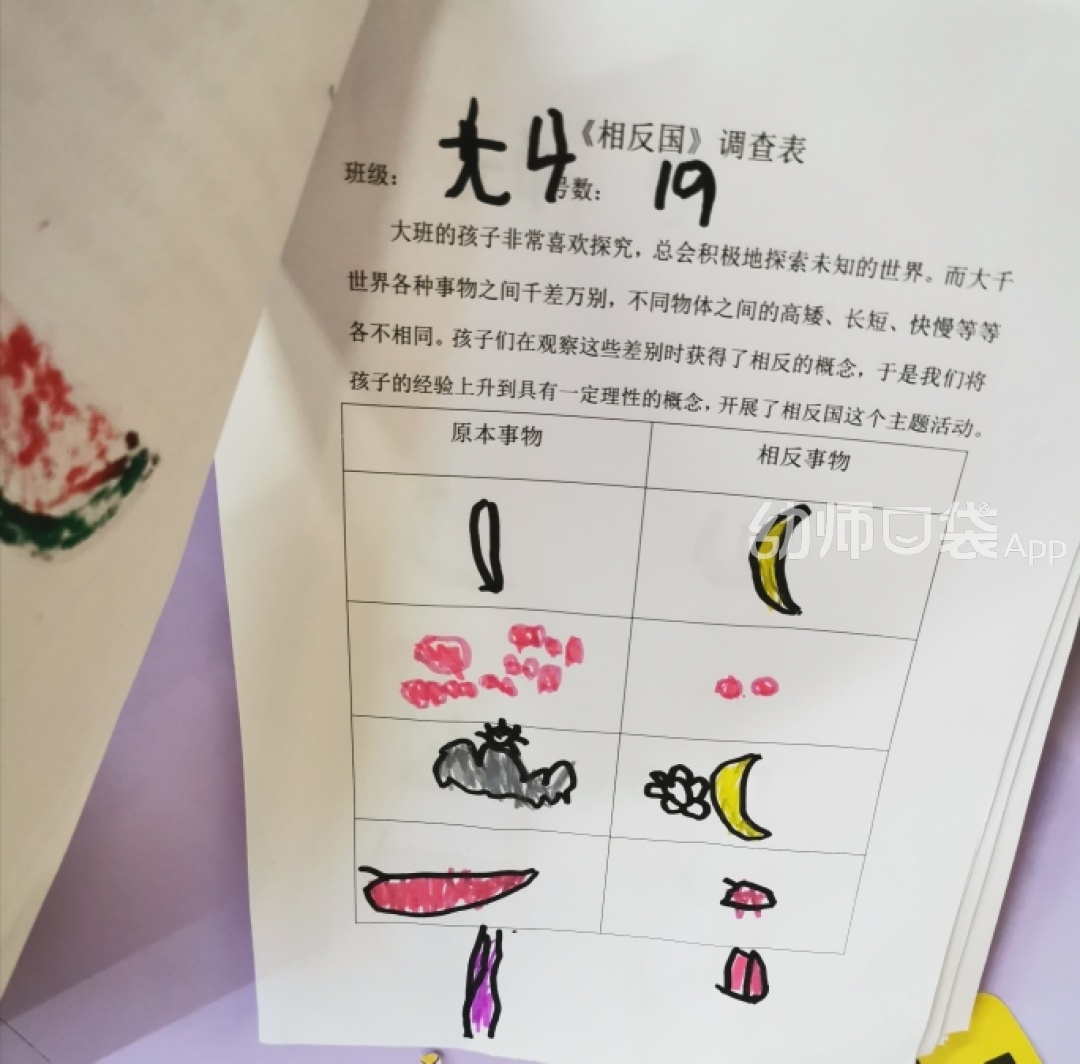 《相反国》调查表
班级：大4 号数：19
大班的孩子非常喜欢探究，总会积极地探索未知的世界。而大千
世界各种事物之间千差万别，不同物体之间的高矮、长短、快慢等等
各不相同。孩子们在观察这些差别时获得了相反的概念，于是我们将
孩子的经验上升到具有一定理性的概念，开展了相反国这个主题活动。
原本事物 相反事物
幼师口袋App